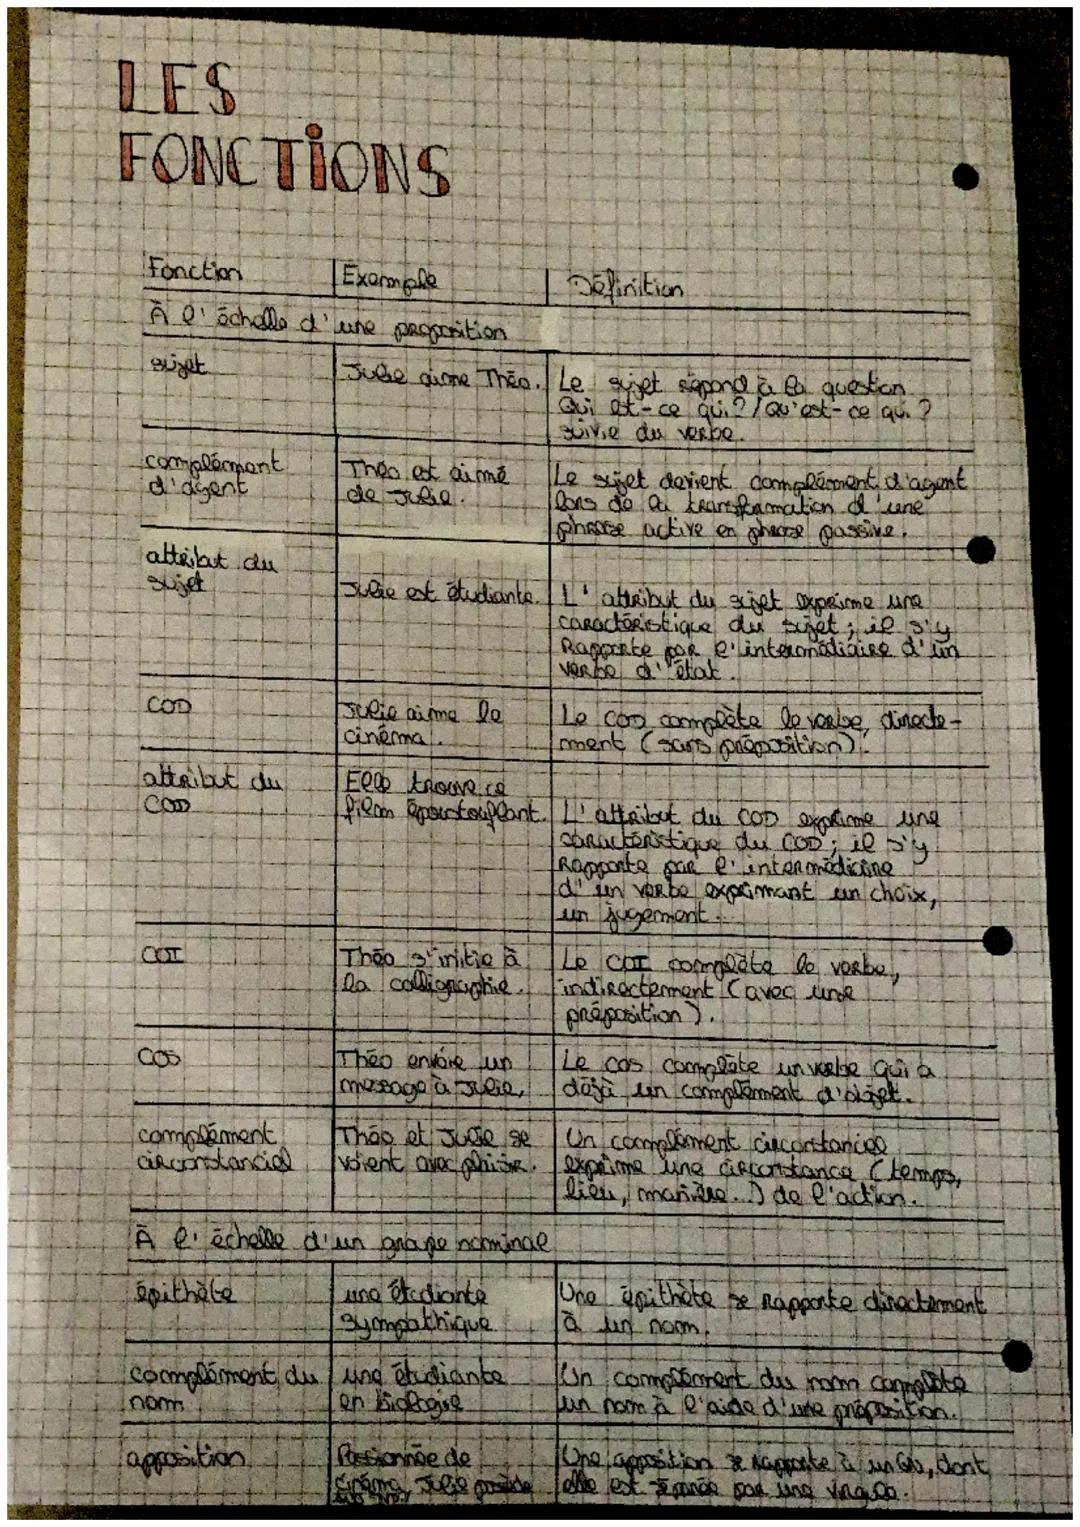 LES
FONCTIONS
Fonction
Exemple
Définition
À l'échelle d'une proposition
sujet
Julie aime Théo.
Le sujet répond à la question
Qui est-ce qui?/Qu'est-ce qui?
suivie du verbe.
complément
d'agent
Théo est aimé
de Julie.
Le sujet devient complément d'agent
lors de la transformation d'une
phrase active en phrase passive.
attribut du
sujet
Julie est étudiante.
L'attribut du sujet exprime une
caractéristique du sujet; il s'y
Rapporte par l'intermédiaire d'un
verbe d'état.
COD
Julie aime le
cinéma.
Le COD complète le verbe, directe-
ment (sans préposition).
attribut du
COD
Elle trouve ce
film époustouflant.
L'attribut du COD exprime une
caractéristique du COD; il s'y
Rapporte par l'intermédiaire
d'un verbe exprimant un choix,
un jugement.
COI
Théo s'initie à
la calligraphie.
Le COI complète le verbe,
indirectement (avec une
préposition).
COS
Théo envoie un
message à Julie.
Le COS complète un verbe qui a
déjà un complément d'objet.
complément
circonstanciel
Théo et Julie se
voient avec plaisir.
Un complément circonstanciel
exprime une circonstance (temps,
lieu, manière...) de l'action.
À l'échelle d'un groupe nominal
épithète
une étudiante
sympathique
Une épithète se rapporte directement
à un nom.
complément du
nom
une étudiante
en biologie
Un complément du nom complète
un nom à l'aide d'une préposition.
apposition
Passionnée de
cinéma, Julie possède
Une apposition se rapporte à un GN, dont
elle est séparée par une virgule.